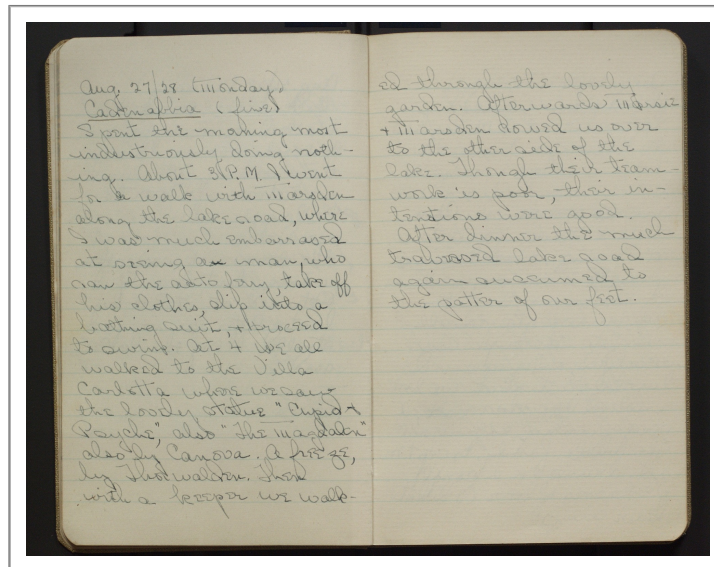 Aug. 27/28 (Monday)
Cadenabbia (fine)
Spent the morning most
industriously doing noth-
ing. About 3 P.M. I went
for a walk with Marsden
along the lake road, where
I was much embarrased
at seeing a man, who
ran the auto fery, take off
his clothes, slip into a
bathing suit, + proceed
to swim. At 4 we all
walked to the Villa
Carlotta where we saw
the lovely statue "Cupid +
Psyche", also "The Magdalen"
also by Canova. A frieze,
by Thorwalden. Then
with a keeper we walk-
ed through the lovely
garden. Afterwards
+ Marsden rowed us over
to the other side of the
lake. Though their team-
work is poor, their in-
tentions were good.
After dinner the much
traversed lake road
again to
the patter of our feet.